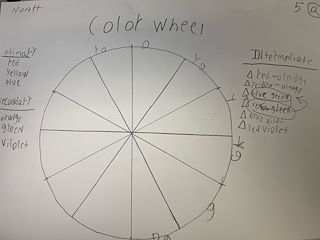 5 a
Color wheel
primary
red
yellow
blue
secondary
orange
green
violet
Intermediate
Δ red-orange
Δ yellow-orange
Δ blue green
Δ yellow green
Δ blue violet
Δ red violet
ro
o
y
g